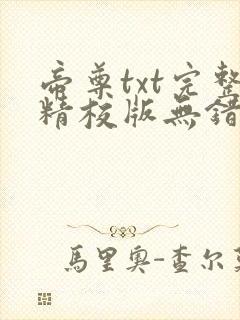 帝尊txt完整
精校版無錯
馬里奧-查尔莫